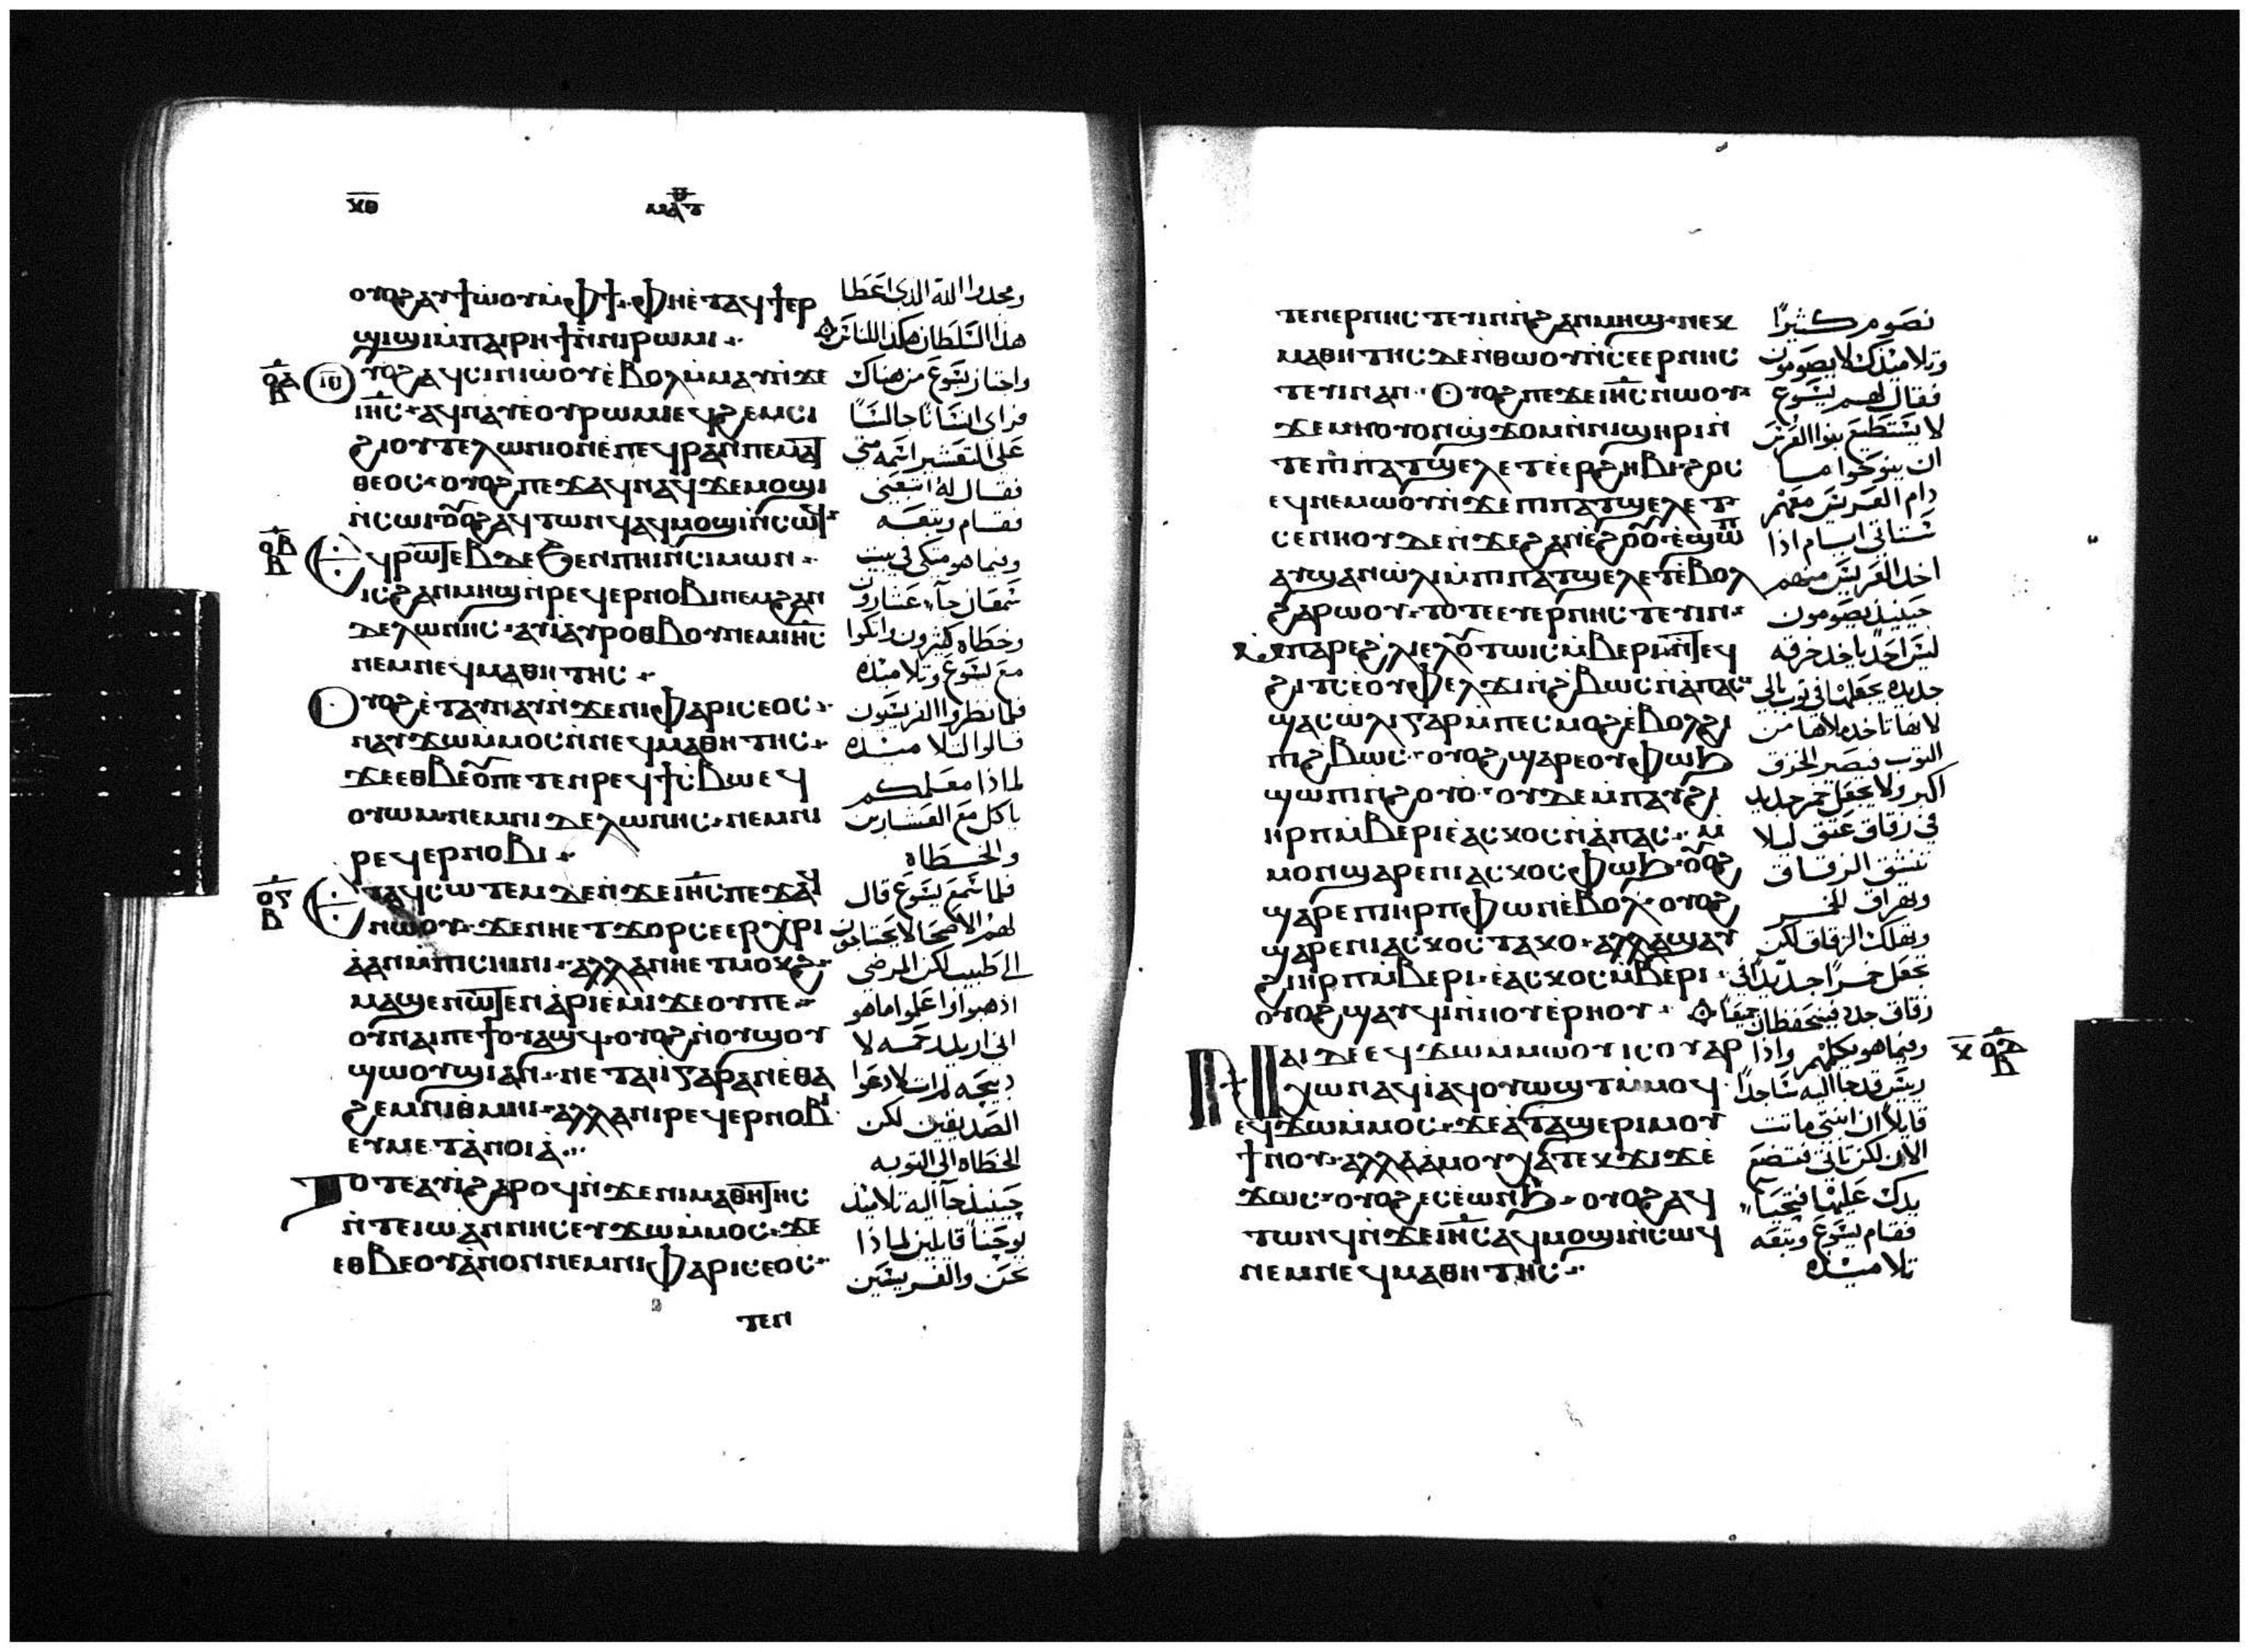 ⲭⲑ
ⲙⲁⲧ ⲑ
ⲟⲩⲟϩ ⲁⲩϯⲱⲟⲩ ⲙ̀ⲫϯ ⲫⲏⲉ̀ⲧⲁϥϯⲉⲣ
ϣⲓϣⲓ ⲙ̀ⲡⲁⲓⲣⲏϯ ⲛ̀ⲛⲓⲣⲱⲙⲓ
ⲟⲩⲟϩ ⲁϥⲥⲓⲛⲓⲱⲟⲩ ⲉ̀ⲃⲟⲗ ⲙ̀ⲙⲁⲩ ⲛ̀ϫⲉ
ⲓⲏ̅ⲥ ⲁϥⲛⲁⲩ ⲉⲟⲩⲣⲱⲙⲓ ⲉϥϩⲉⲙⲥⲓ
ϩⲓⲟⲩⲧⲉⲗⲱⲛⲓⲟⲛ ⲉ̀ⲡⲉϥⲣⲁⲛ ⲡⲉ ⲙⲁⲧ
ⲑⲉⲟⲥ ⲟⲩⲟϩ ⲡⲉϫⲁϥ ⲛⲁϥ ϫⲉ ⲙⲟϣⲓ
ⲛ̀ⲥⲱⲓ ⲟⲩⲟϩ ⲁϥⲧⲱⲛϥ ⲁϥⲙⲟϣⲓ ⲛ̀ⲥⲱϥ
ⲉϥⲣⲱⲧⲉⲃ ⲇⲉ ϧⲉⲛ ⲡⲏⲓ ⲛ̀ⲥⲓⲙⲱⲛ
ⲓⲥ ϩⲁⲛⲙⲏϣ ⲛ̀ⲣⲉϥⲉⲣⲛⲟⲃⲓ ⲛⲉⲙ ϩⲁⲛ
ⲇⲉⲗⲱⲛⲏⲥ ⲁⲩⲓ̀ ⲁⲩⲣⲟⲑⲃⲟⲩ ⲛⲉⲙ ⲓⲏ̅ⲥ
ⲛⲉⲙ ⲛⲉϥⲙⲁⲑⲏⲧⲏⲥ
ⲟⲩⲟϩ ⲉ̀ⲧⲁⲩⲛⲁⲩ ⲛ̀ϫⲉ ⲛⲓⲫⲁⲣⲓⲥⲉⲟⲥ
ⲛⲁⲩϫⲱ ⲙ̀ⲙⲟⲥ ⲛ̀ⲛⲉϥⲙⲁⲑⲏⲧⲏⲥ
ϫⲉ ⲉⲑⲃⲉⲟⲩ ⲡⲉⲧⲉⲛⲣⲉϥϯⲥⲃⲱ ⲉϥ
ⲟⲩⲱⲙ ⲛⲉⲙ ⲛⲓⲇⲉⲗⲱⲛⲏⲥ ⲛⲉⲙ ⲛⲓ
ⲣⲉϥⲉⲣⲛⲟⲃⲓ
ⲉⲧⲁϥⲥⲱⲧⲉⲙ ⲇⲉ ⲛ̀ϫⲉ ⲓⲏ̅ⲥ ⲡⲉϫⲁϥ
ⲛⲱⲟⲩ ϫⲉ ⲛⲏⲉⲧϫⲟⲣ ⲥⲉⲉⲣⲭⲣⲓ
ⲁ ⲁⲛ ⲙ̀ⲡⲓⲥⲏⲓⲛⲓ ⲁⲗⲗⲁ ⲛⲏⲉⲧⲙⲟⲕϩ
ⲙⲁϣⲉⲛⲱⲧⲉⲛ ⲁ̀ⲣⲓⲉ̀ⲙⲓ ϫⲉ ⲟⲩ ⲡⲉ
ⲟⲩⲛⲁⲓ ⲡⲉϯⲟⲩⲁϣϥ ⲟⲩⲟϩ ⲛ̀ⲟⲩϣⲟⲩ
ϣⲱⲟⲩϣⲓ ⲁⲛ ⲛⲉⲧⲁⲓⲓ̀ ⲅⲁⲣ ⲁⲛ ⲉ̀ⲑⲁ
ϩⲉⲙ ⲛⲓⲑⲙⲏⲓ ⲁⲗⲗⲁ ⲛⲓⲣⲉϥⲉⲣⲛⲟⲃⲓ
ⲉⲩⲙⲉⲧⲁⲛⲟⲓⲁ̀
ⲧⲟⲧⲉ ⲁⲩⲓ̀ ϩⲁⲣⲟϥ ⲛ̀ϫⲉ ⲛⲓⲙⲁⲑⲏⲧⲏⲥ
ⲛ̀ⲧⲉ ⲓⲱⲁⲛⲛⲏⲥ ⲉⲩϫⲱ ⲙ̀ⲙⲟⲥ ϫⲉ
ⲉⲑⲃⲉⲟⲩ ⲁ̀ⲛⲟⲛ ⲛⲉⲙ ⲛⲓⲫⲁⲣⲓⲥⲉⲟⲥ
ⲧⲉⲛ
ومجدوا الله الذي اعطا
هذا السلطان هكذا للناس
واجتاز يسوع من هناك
فراى انسانا جالسا
على التعشير اسمه متي
فقال له اتبعني
فقام وتبعه
وفيما هو متكي في بيت
سمعان جآء عشارون
وخطاه كثيرون واتكوا
مع يسوع وتلاميذه
فلما نظروا الفريسيون
قالوا لتلاميذه
لماذا معلمكم
ياكل مع العشارين
والخطاه
فلما سمع يسوع قال
لهم الاصحا لا يحتاجون
الى طبيب لكن المرضى
اذهبوا اذا اعلموا ما هو
اني اريد رحمه لا
ذبيحه لم ات لادعوا
الصديقين لكن
الخطاه الى التوبه
حينيذ جآ اليه تلاميذ
يوحنا قايلين لماذا
نحن والفريسيين
ⲧⲉⲛⲉⲣⲛⲏⲥⲧⲉⲩⲓⲛ ⲛ̀ϩⲁⲛⲙⲏϣ ⲛⲉⲕ
ⲙⲁⲑⲏⲧⲏⲥ ⲇⲉ ⲛ̀ⲑⲱⲟⲩ ⲛ̀ⲥⲉⲉⲣⲛⲏⲥ
ⲧⲉⲩⲓⲛ ⲁⲛ ⲟⲩⲟϩ ⲡⲉϫⲉ ⲓⲏ̅ⲥ ⲛⲱⲟⲩ
ϫⲉ ⲙⲏ ⲟⲩⲟⲛϣϫⲟⲙ ⲛ̀ⲛⲓϣⲏⲣⲓ ⲛ̀
ⲧⲉ ⲡⲓⲡⲁⲧϣⲉⲗⲉⲧ ⲉⲉⲣϩⲏⲃⲓ ϩⲟⲥ
ⲉϥⲛⲉⲙⲱⲟⲩ ⲛ̀ϫⲉ ⲡⲓⲡⲁⲧϣⲉⲗⲉⲧ
ⲥⲉⲛⲏⲟⲩ ⲇⲉ ⲛ̀ϫⲉ ϩⲁⲛⲉ̀ϩⲟⲟⲩ ⲉ̀ϣⲱⲡ
ⲁⲩϣⲁⲛⲱⲗⲓ ⲙ̀ⲡⲓⲡⲁⲧϣⲉⲗⲉⲧ ⲉ̀ⲃⲟⲗ
ϩⲁⲣⲱⲟⲩ ⲧⲟⲧⲉ ⲉⲩⲉⲣⲛⲏⲥⲧⲉⲩⲓⲛ
ⲙ̀ⲡⲁⲣⲉ ϩⲗⲓ ⲉⲗ ⲟⲩⲧⲱⲓⲥ ⲙ̀ⲃⲉⲣⲓ ⲛ̀ⲧⲉϥ
ϩⲓⲧⲥ ⲉ̀ⲟⲩⲫⲉⲗϫⲓ ⲛ̀ϩⲃⲱⲥ ⲛ̀ⲁ̀ⲡⲁⲥ
ϣⲁⲥⲱⲗⲓ ⲅⲁⲣ ⲙ̀ⲡⲉⲥⲙⲟϩ ⲉ̀ⲃⲟⲗ ϩⲓ
ⲡⲓϩⲃⲱⲥ ⲟⲩⲟϩ ϣⲁⲣⲉ ⲟⲩⲫⲱϧ
ϣⲱⲡⲓ ⲛ̀ϩⲟⲩⲟ̀ ⲟⲩⲇⲉ ⲙ̀ⲡⲁⲩϩⲓ
ⲏⲣⲡ ⲙ̀ⲃⲉⲣⲓ ⲉ̀ⲁⲥⲕⲟⲥ ⲛ̀ⲁ̀ⲡⲁⲥ ⲙ̀
ⲙⲟⲛ ϣⲁⲣⲉ ⲛⲓⲁⲥⲕⲟⲥ ⲫⲱϧ ⲟⲩⲟϩ
ϣⲁⲣⲉ ⲡⲓⲏⲣⲡ ⲫⲱⲛ ⲉ̀ⲃⲟⲗ ⲟⲩⲟϩ
ϣⲁⲣⲉ ⲛⲓⲁⲥⲕⲟⲥ ⲧⲁⲕⲟ ⲁⲗⲗⲁ ϣⲁⲩ
ϩⲓ ⲏⲣⲡ ⲙ̀ⲃⲉⲣⲓ ⲉ̀ⲁⲥⲕⲟⲥ ⲙ̀ⲃⲉⲣⲓ
ⲟⲩⲟϩ ϣⲁⲩϥⲓ ⲛ̀ⲛⲟⲩⲉ̀ⲣⲏⲟⲩ
ⲛⲁⲓ ⲇⲉ ⲉϥϫⲱ ⲙ̀ⲙⲱⲟⲩ ⲓⲥ ⲟⲩⲁⲣ
ⲭⲱⲛ ⲁϥⲓ̀ ⲁϥⲟⲩⲱϣⲧ ⲙ̀ⲙⲟϥ
ⲉϥϫⲱ ⲙ̀ⲙⲟⲥ ϫⲉ ⲁ̀ ⲧⲁϣⲉⲣⲓ ⲙⲟⲩ
ϯⲛⲟⲩ ⲁⲗⲗⲁ ⲁ̀ⲙⲟⲩ ⲭⲁ ⲧⲉⲕϫⲓϫ ⲉ̀
ϫⲱⲥ ⲟⲩⲟϩ ⲉⲥⲉ̀ⲱⲛϧ ⲟⲩⲟϩ ⲁϥ
ⲧⲱⲛϥ ⲛ̀ϫⲉ ⲓⲏ̅ⲥ ⲁϥⲙⲟϣⲓ ⲛ̀ⲥⲱϥ
ⲛⲉⲙ ⲛⲉϥⲙⲁⲑⲏⲧⲏⲥ
نصوم كثيرا
وتلاميذك لا يصومون
فقال لهم يسوع
لا يستطيع بنوا العرس
ان ينوحوا ما
دام العريس معهم
ستاتي ايام اذا
اخذ العريس منهم
حينيذ يصومون
ليس احد ياخذ خرقه
جديده يجعلها في ثوب بالي
لانها تاخذ ملاها من
الثوب فيصير الخزق
اكبر ولا يجعل خمر جديد
في زقاق عتق ليلا
تنشق الزقاق
ويهراق الخمر
وتهلك الزقاق لكن
يجعل خمرا جديدا في
زقاق جدد فيتحفظان جميعا
وفيما هو يكلمهم واذا
ريس قد جا اليه ساجدا
قايلا ان ابنتي ماتت
الان لكن تاتي فتضع
يدك عليها فتحيا
فقام يسوع وتبعه
تلاميذه